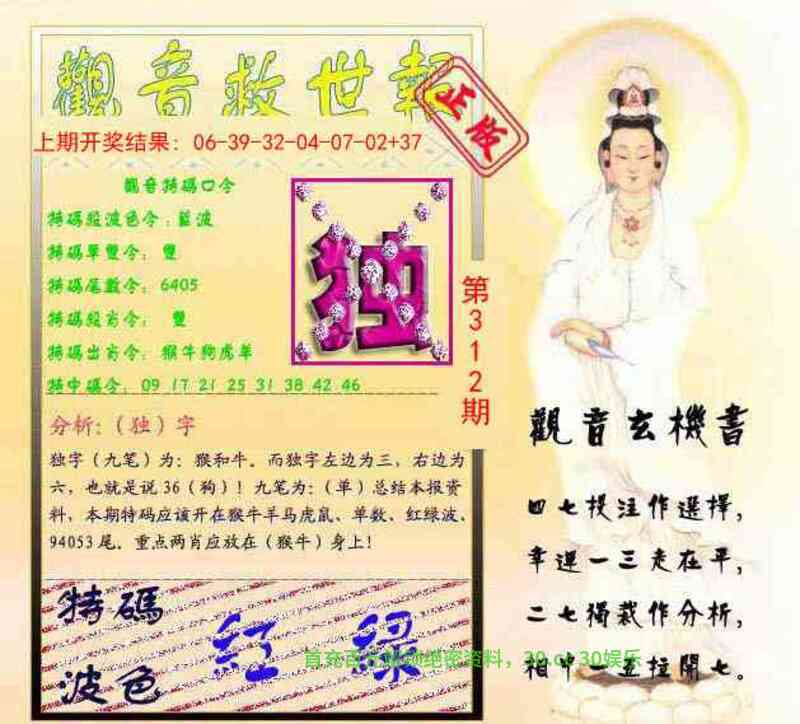 觀音救世報
正版
上期开奖结果：06-39-32-04-07-02+37
觀音特碼口令
特碼段波色令：藍波
特碼單雙令：雙
特碼尾數令：6405
特碼段肖令：雙
特碼出肖令：猴牛狗虎羊
特中碼令：09 17 21 25 31 38 42 46
独
第312期
分析：（独）字
独字（九笔）为：猴和牛。而独字左边为三，右边为
六，也就是说36（狗）！九笔为：（单）总结本报资
料，本期特码应该开在猴牛羊马虎鼠、单数、红绿波、
94053尾。重点两肖应放在（猴牛）身上！
特碼
波色
紅 綠
觀音玄機書
四七投注作選擇，
幸運一三走在平，
二七獨裁作分析，
相中一並柱開七。
30娱乐